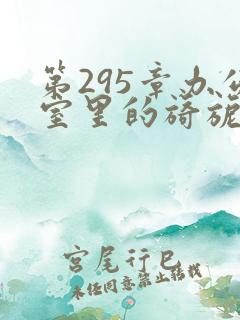 第295章办公
室里的旖旎
宫尾行巳
未经同意禁止转载